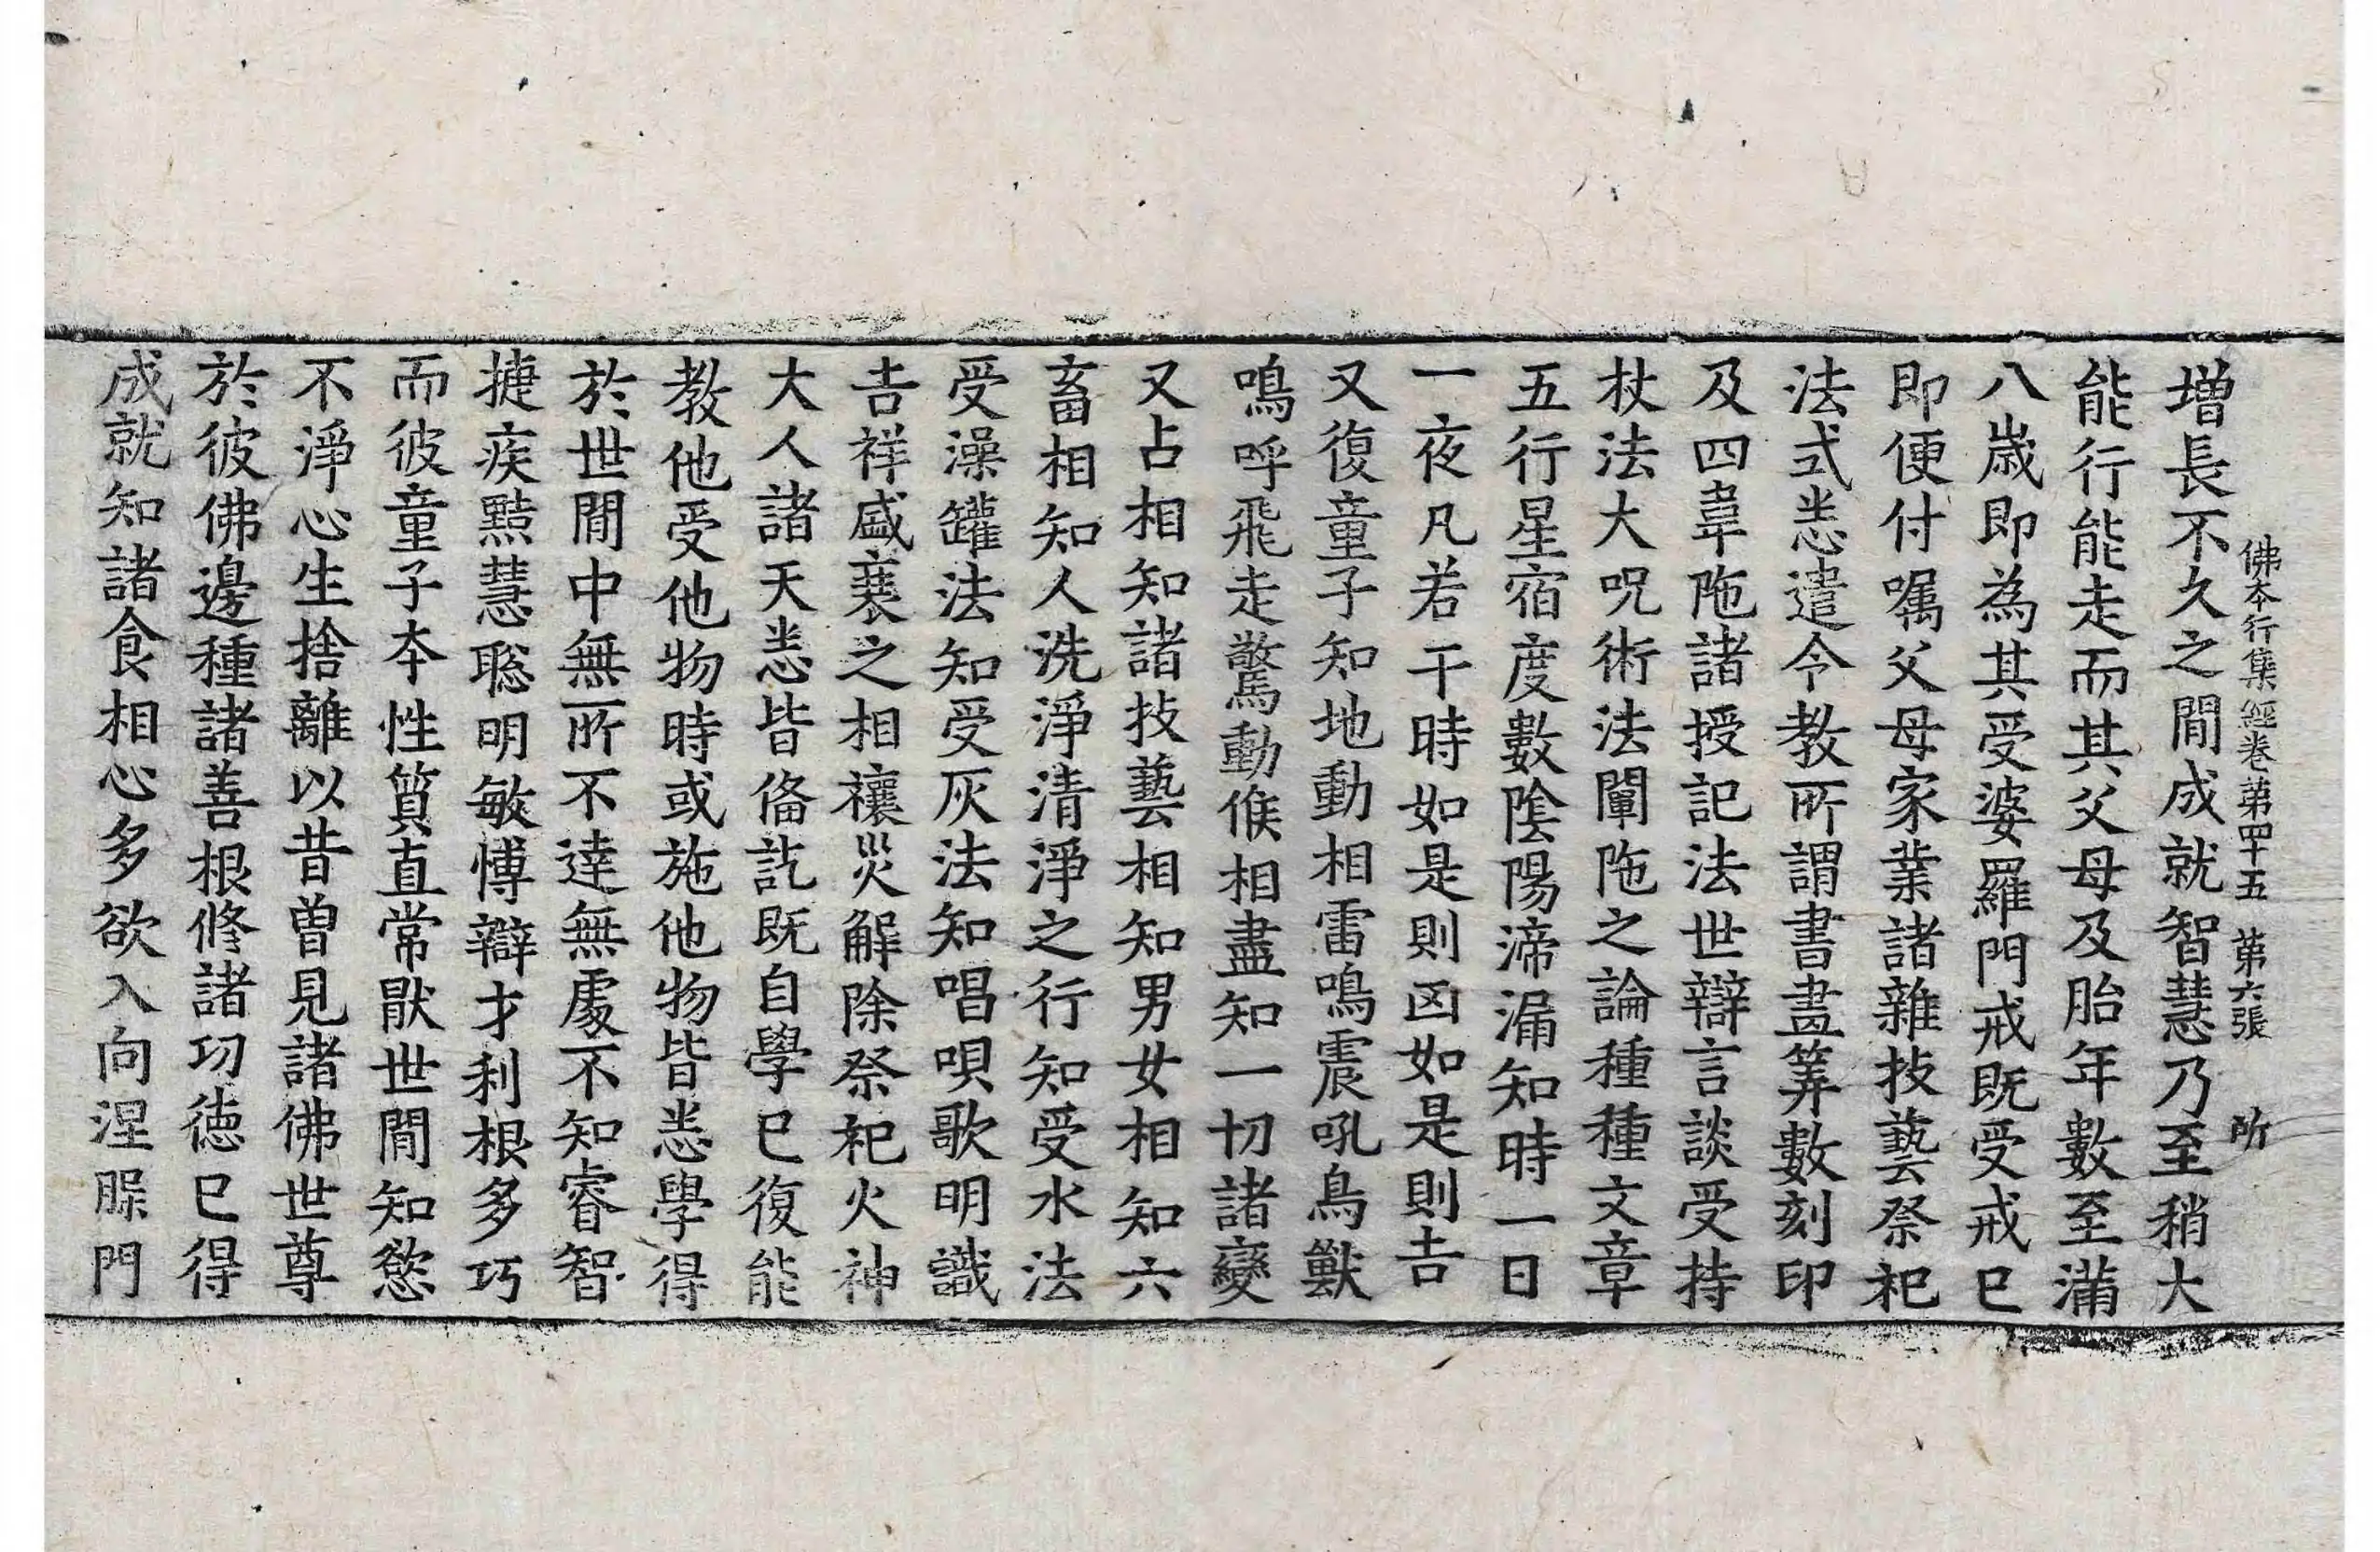 佛本行集經卷第四十五 第六張 所
增長不久之間成就智慧乃至稍大
能行能走而其父母及胎年數至滿
八歲即為其受婆羅門戒既受戒已
即便付嘱父母家業諸雜技藝祭祀
法式悉遣令教所謂書畫筭數刻印
及四韋陁諸授記法世辯言談受持
杖法大呪術法闡陁之論種種文章
五行星宿度數陰陽渧漏知時一日
一夜凡若干時如是則凶如是則吉
又復童子知地動相雷鳴震吼鳥獸
鳴呼飛走驚動候相盡知一切諸變
又占相知諸技藝相知男女相知六
畜相知人洗淨清淨之行知受水法
受澡罐法知受灰法知唱唄歌明識
吉祥盛衰之相禳災解除祭祀火神
大人諸天悉皆俻訖既自學已復能
教他受他物時或施他物皆悉學得
於世間中無所不達無處不知睿智
捷疾黠慧聡明敏博辯才利根多巧
而彼童子本性質直常猒世間知慾
不淨心生捨離以昔曾見諸佛世尊
於彼佛邊種諸善根修諸功德已得
成就知諸食相心多欲入向涅槃門